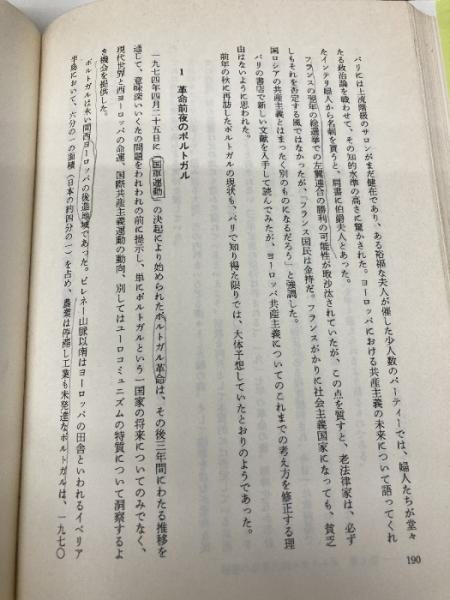 パリには上流階級のサロンがまだ健在であり、ある裕福な夫人が催した少人数のパーティーでは、婦人たちが堂々
たる政治論を戦わせて、その知的水準の高さに驚かされた。ヨーロッパにおける共産主義の未来について語ってくれ
たインテリ婦人から名刺を貰うと、肩書に伯爵夫人とあった。
フランスの翌年の総選挙での左翼連合の勝利の可能性が取沙汰されていたが、この点を質すと、老法律家は、必ず
しもそれを否定する風ではなかったが、「フランス国民は金持だ。フランスがかりに社会主義国家になっても、貧乏
国ロシアの共産主義とはまったく別のものになるだろう」と強調した。
パリの書店で新しい文献を入手して読んでみたが、ヨーロッパ共産主義についてのこれまでの考え方を修正する理
由はないように思われた。
前年の秋に再訪したポルトガルの現状も、パリで知り得た限りでは、大体予想していたとおりのようであった。
1 革命前夜のポルトガル
一九七四年四月二十五日に「国軍運動」の決起により始められたポルトガル革命は、その後三年間にわたる推移を
通じて、意味深いいくたの問題をわれわれの前に提示し、単にポルトガルという一国家の将来についてのみでなく、
現代世界と西ヨーロッパの命運、国際共産主義運動の動向、別してはユーロコミュニズムの特質について洞察するよ
き機会を提供した。
ポルトガルは永い間西ヨーロッパの後進地域であった。ピレネー山脈以南はヨーロッパの田舎といわれるイベリア
半島において、六分の一の面積(日本の約四分の一)を占め、農業は停滞し工業も未発達なポルトガルは、一九七〇
190